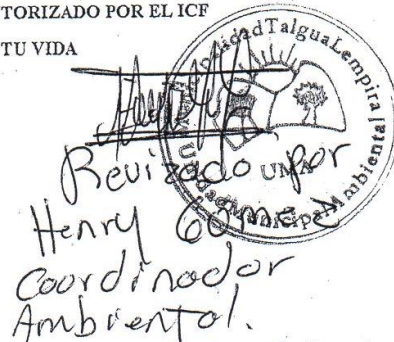 TORIZADO POR EL ICF
TU VIDA
Talgua Lempira
UMA
Municipal Ambiental
Revizado por
Henry Gómez
Coordinador
Ambiental.